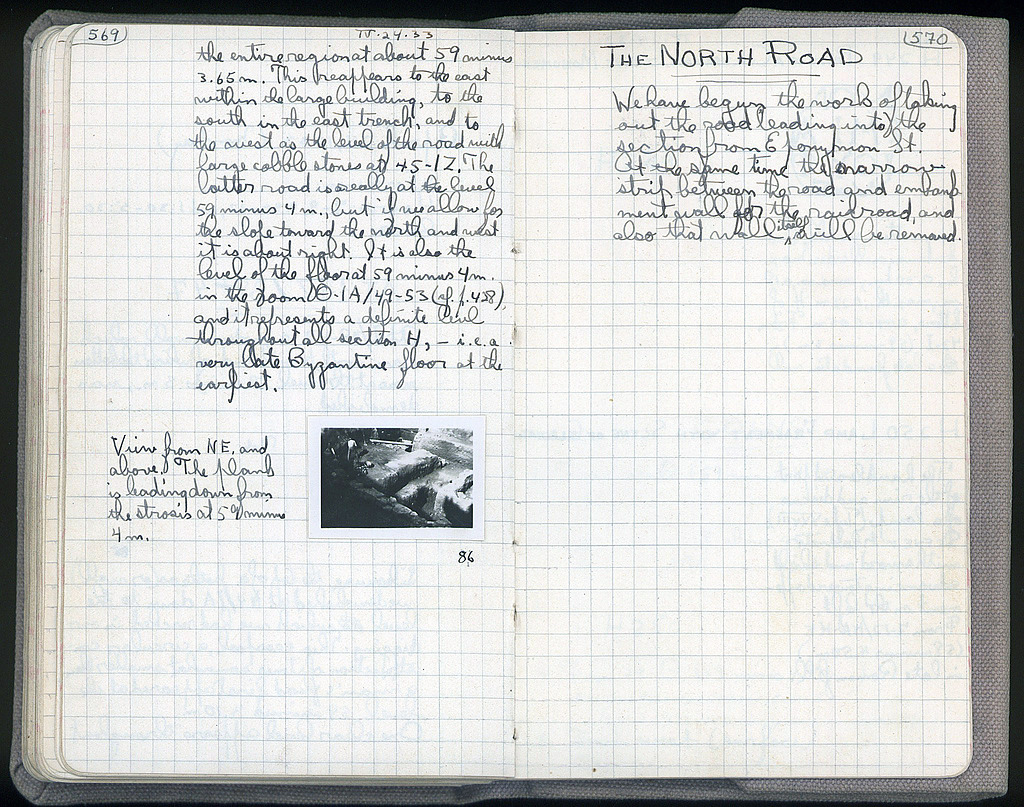 569
IV·24·33
the entire region at about 59 minus
3.65 m. This reappears to the east
within the large building, to the
south in the east trench, and to
the west as the level of the road with
large cobble stones at 45-IZ. The
latter road is really at the level
59 minus 4 m., but if we allow for
the slope toward the north and west
it is about right. It is also the
level of the floor at 59 minus 4 m.
in the room Θ-IA/49-53 (cf. p. 458),
and it represents a definite level
throughout all section H, – i.e. a
very late Byzantine floor at the
earliest.
View from NE, and
above. The plank
is leading down from
the strosis at 59 minus
4 m.
86
570
THE NORTH ROAD
We have begun the work of taking
out the road leading into the
section from Eponymon St.
At the same time the narrow
strip between the road and embank
ment wall for the railroad, and
also that wall itself will be removed.